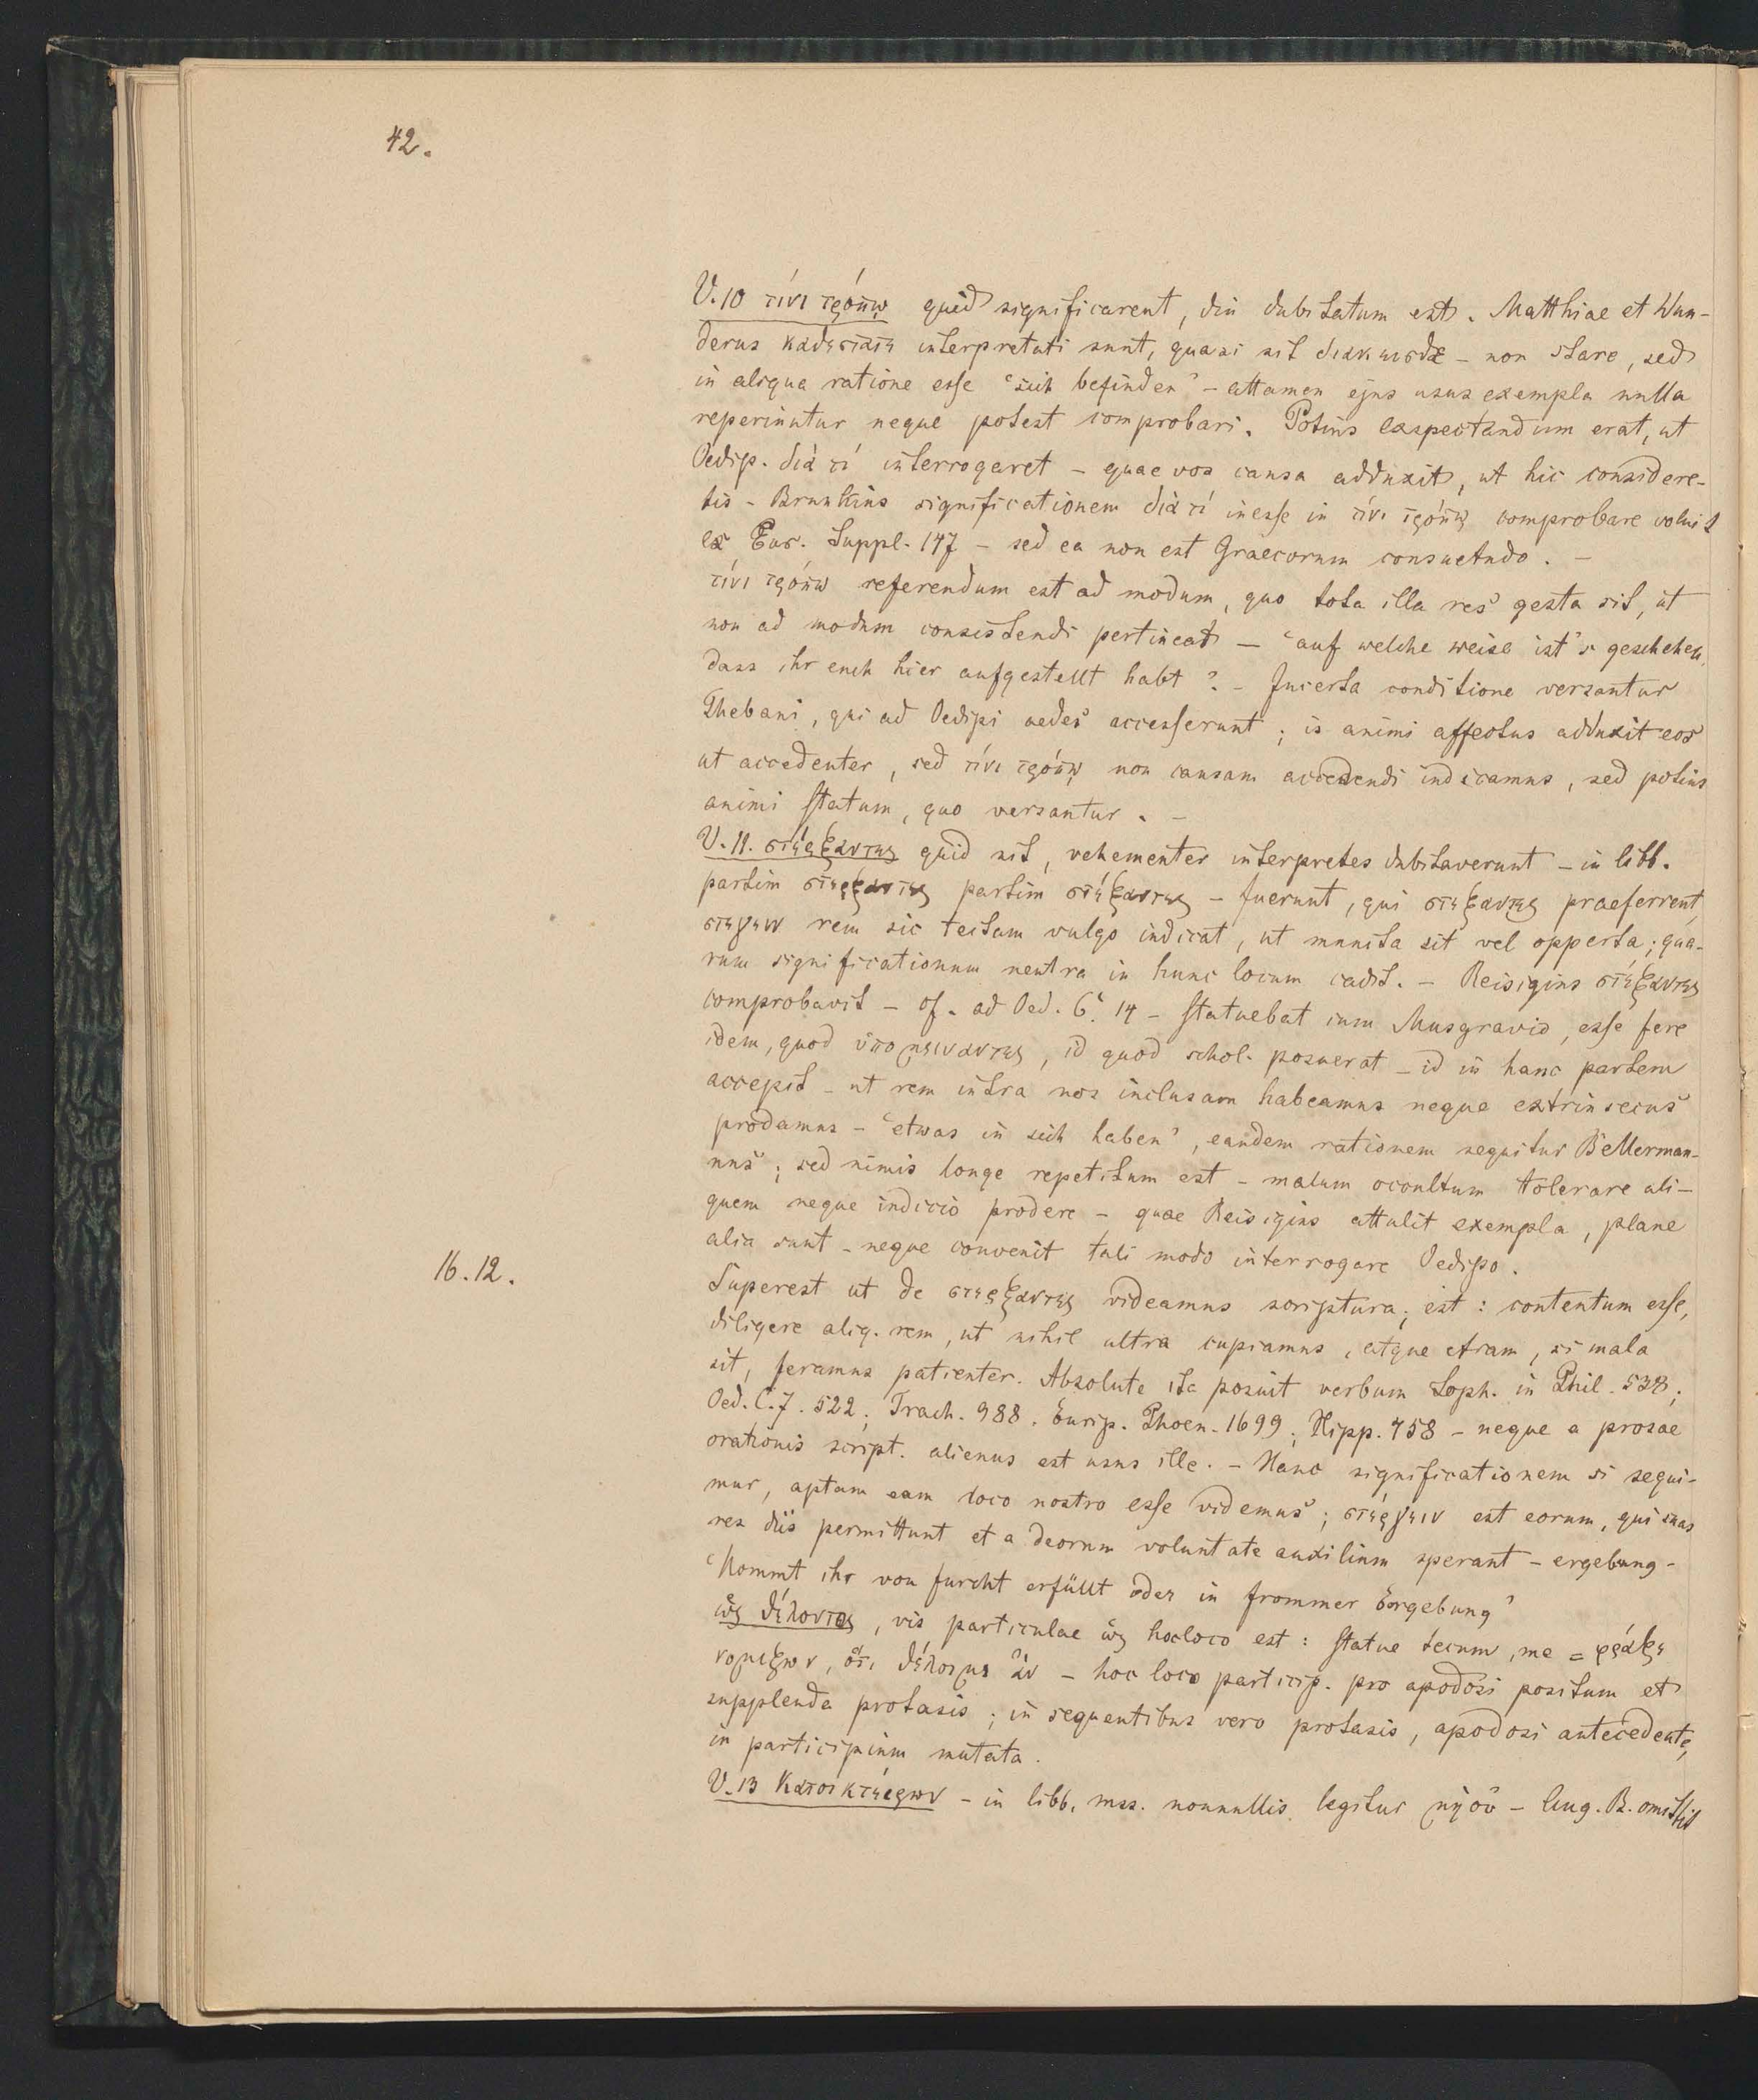 42.
V. 10 τίνι τρόπῳ quid significarent, diu dubitatum est. Matthiae et Wun-
derus καθεστατε interpretati sunt, quasi sit διακεισθε - non stare, sed
in aliqua ratione esse "sich befinden" - attamen ejus usus exempla nulla
reperiuntur neque potest comprobari. Potius exspectandum erat, ut
Oedip. διὰ τί interrogaret - quae vos causa adduxit, ut hic considere-
tis - Brunkius significationem διὰ τί inesse in τίνι τρόπῳ comprobare voluit
ex Eur. Suppl. 147 - sed ea non est Graecorum consuetudo. -
τίνι τρόπω referendum est ad modum, quo tota illa res gesta sit, ut
non ad modum consistendi pertineat — "auf welche weise ist's geschehen,
dass ihr euch hier aufgestellt habt? - Incerta conditione versantur
Thebani, qui ad Oedipi aedes accesserunt; is animi affectus adduxit eos
ut accedenter, sed τίνι τρόπῳ non causam accedendi indicamus, sed potius
animi statum, quo versantur. -
V. 11. στέρξαντες quid sit, vehementer interpretes dubitaverunt - in libb.
partim στερξαντες partim στέξαντες - fuerunt, qui στεξαντες praeferrent,
στεγειν rem sic tectam vulgo indicat, ut munita sit vel opperta; qua-
rum significationum neutra in hunc locum cadit. - Reisigius στέξαντες
comprobavit - cf. ad Oed. C. 14 - statuebat cum Musgravio, esse fere
idem, quod ὑπομειναντες, id quod schol. posuerat - id in hanc partem
accepit - ut rem intra nos inclusam habeamus neque extrinsecus
prodamus - "etwas in sich haben", eandem rationem sequitur Bellerman-
nus; sed nimis longe repetitum est - malum occultum tolerare ali-
quem neque indicio prodere - quae Reisigius attulit exempla, plane
alia sunt - neque convenit tali modo interrogare Oedipo.
16. 12.
Superest ut de στερξαντες videamus scriptura; est: contentum esse,
diligere aliq. rem, ut nihil ultra cupiamus, atque etiam, si mala
sit, feramus patienter. Absolute ita posuit verbum Soph. in Phil. 538;
Oed. C. 7. 522; Trach. 988. Eurip. Phoen. 1699; Hipp. 458 - neque a prosae
orationis script. alienus est usus ille. - Hanc significationem si sequi-
mur, aptam eam loco nostro esse videmus; στέργειν est eorum, qui suas
res diis permittunt et a deorum voluntate auxilium sperant - ergebung -
"Kommt ihr von furcht erfüllt oder in frommer Ergebung"
ὡς θέλοντος, vis particulae ὡς hoc loco est: statue tecum, me = φράζε
νομιζων, ὅτι θέλοιμι ἂν - hoc loco particip. pro apodosi positum et
supplenda protasis; in sequentibus vero protasis, apodosi antecedente,
in participium mutata.
V. 13 Κατοικτείρων - in libb. mss. nonnullis legitur μὴ οὐ - Aug. B. omittit